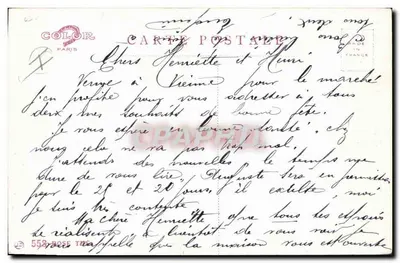 COLOR
PARIS
CARTE POSTALE
Chers Henriette et Henri
Venue à Vienne pour le marché
j'en profite pour vous adresser à tous
deux mes souhaits de bonne fête.
Je vous espère en bonne santé. chez
nous cela ne va pas trop mal.
J'attends des nouvelles le temps me
dure de vous lire. Auguste sera en permission
pour le 25 et 20 jours, il catelte moi
je suis très contente
Ma chère Henriette que tous tes espoirs
se réalisent, à bientôt de vous voir je
vous rappelle que la maison vous est ouverte
552